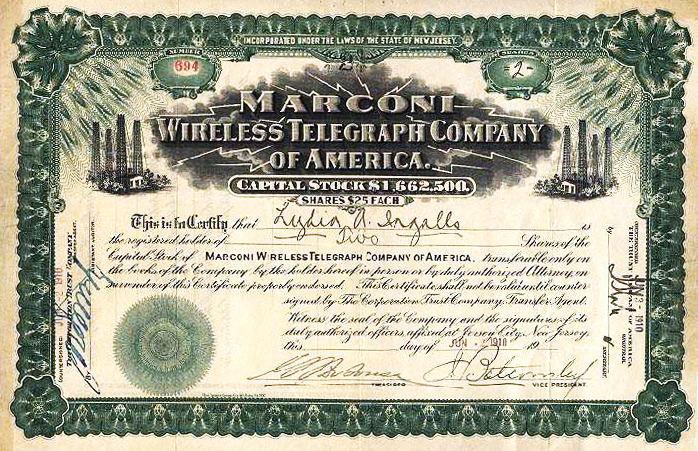 INCORPORATED UNDER THE LAWS OF THE STATE OF NEW JERSEY.
NUMBER
694
SHARES
-2-
MARCONI
WIRELESS TELEGRAPH COMPANY
OF AMERICA.
CAPITAL STOCK $1,662,500.
SHARES $25 EACH
This is to Certify that Lydia A. Ingalls is
the registered holder of Two Shares of the
Capital Stock of MARCONI WIRELESS TELEGRAPH COMPANY OF AMERICA. transferable only on
the books of the Company by the holder hereof in person or by duly authorized Attorney, on
surrender of this Certificate properly endorsed. This Certificate shall not be valid until counter
signed by The Corporation Trust Company, Transfer Agent.
Witness the seal of the Company and the signatures of its
duly authorized officers, affixed at Jersey City, New Jersey,
this day of JUN - 2 1910 19
TREASURER
VICE PRESIDENT
COUNTERSIGNED
JUN - 2 1910
BY
JUN 2 1910
by